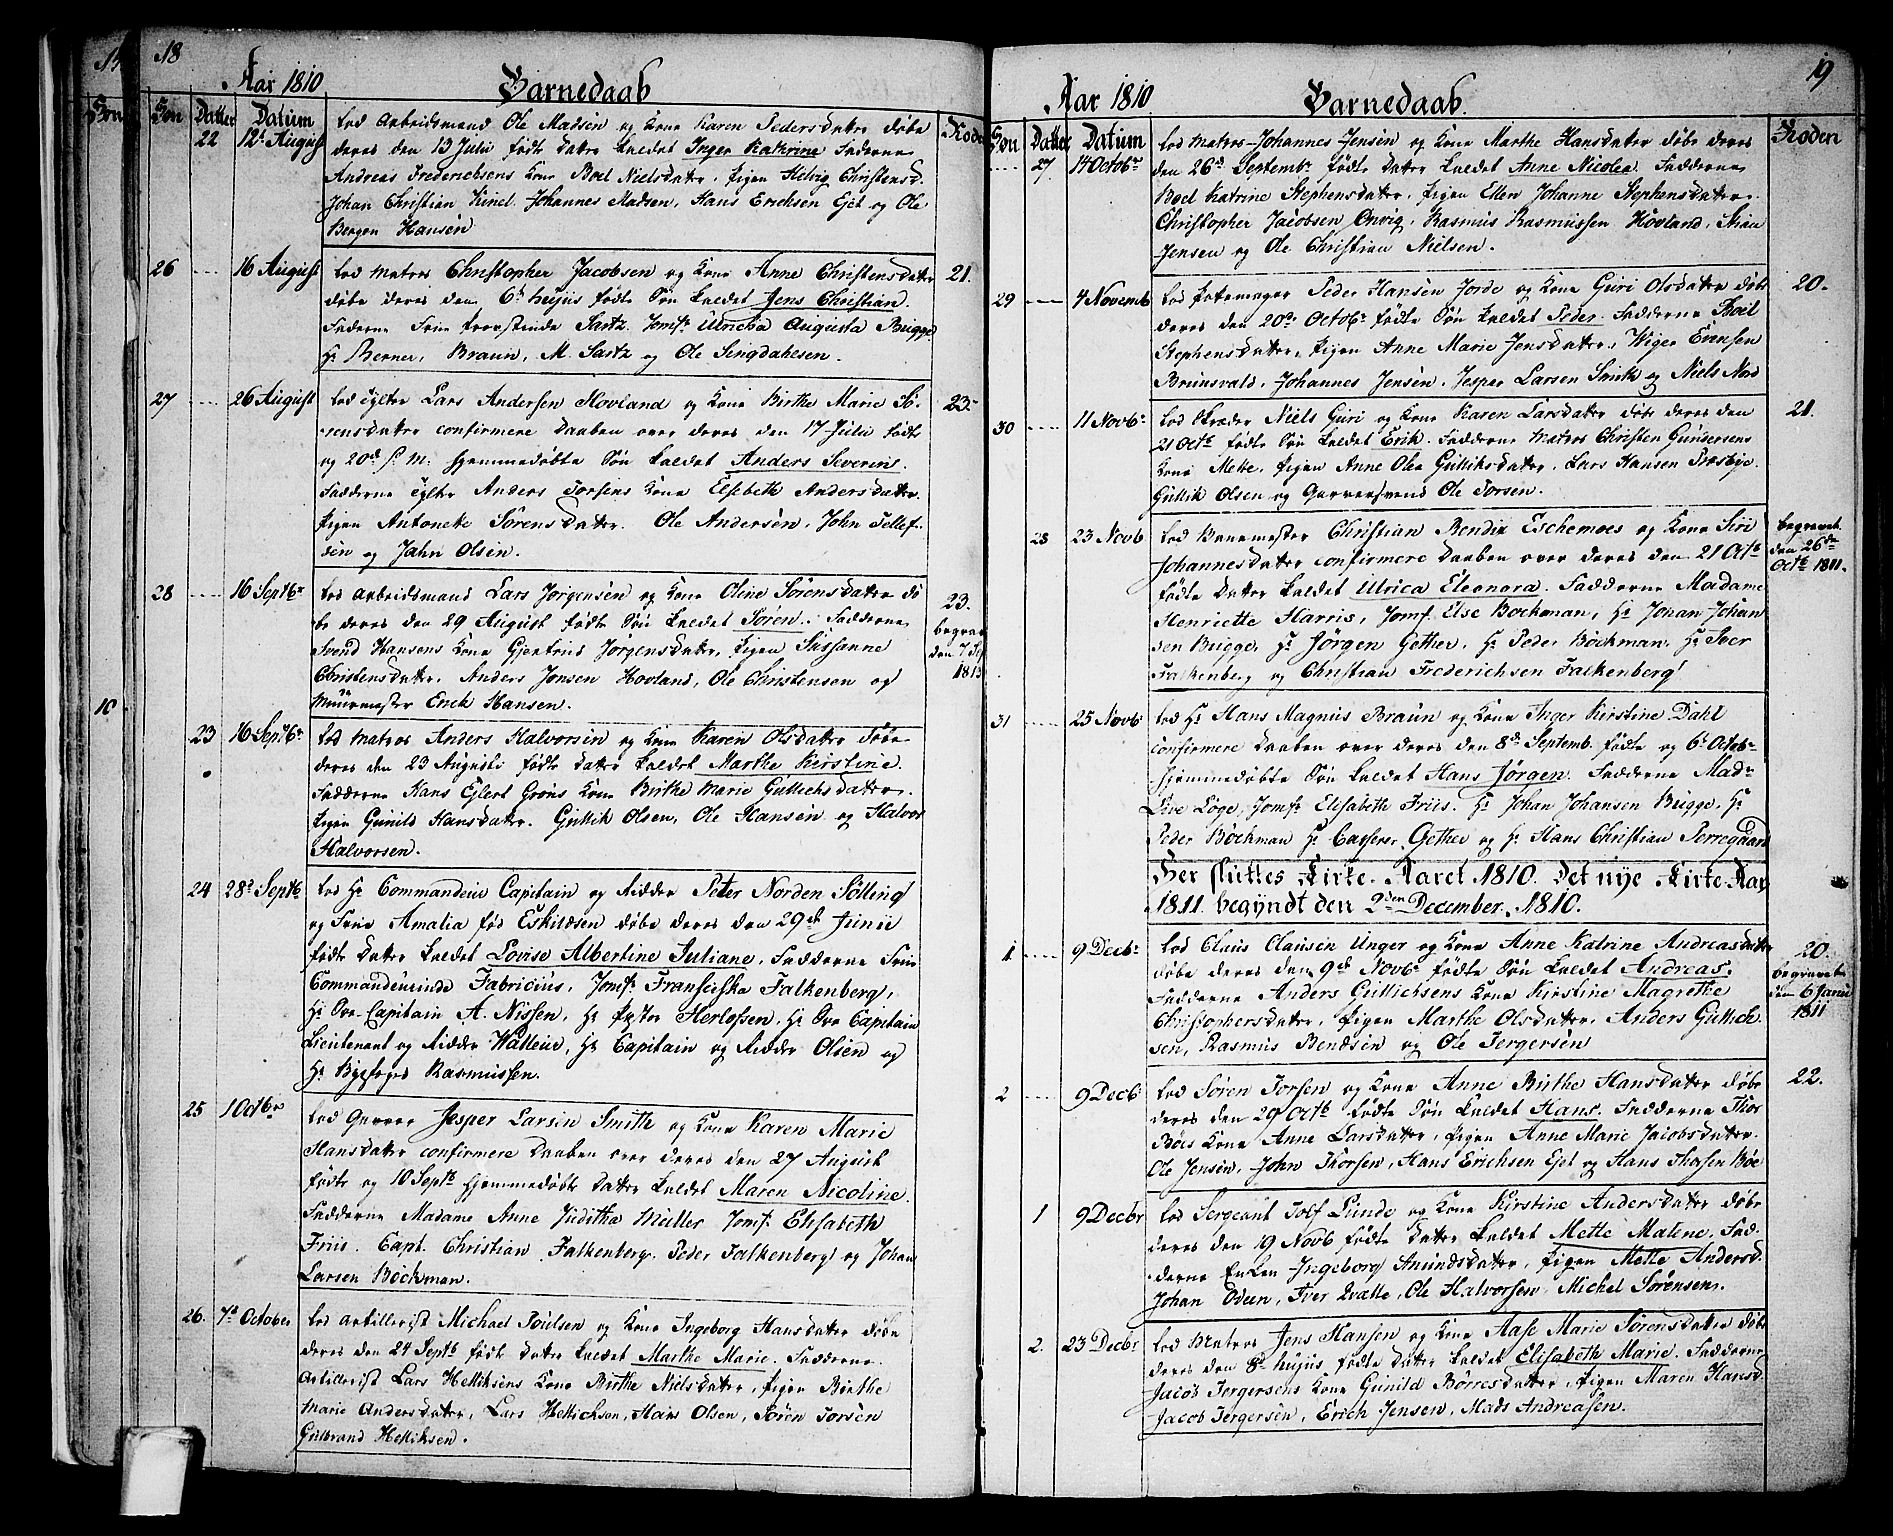 18
Aar 1810 Barnedaab
Søn Datter Datum Koder
22 12t August
Lod Arbeidsmand Ole Madsen og Kone Karen Pedersdatter døbe
deres den 13 Julii født Datter kaldet Inger Kathrine Fadderne
Andreas Frederichsens Kone Boel Nielsdatter, Pigen Helvig Christensd.
Johan Christian Kinel. Johannes Madsen, Hans Erichsen Eiet og Ole
Bergen Hansen
26 16 August 21.
Lod Matros Christopher Jacobsen og Kone Anne Christensdatter
døbe deres den 6t hujus fødte Søn kaldet Jens Christian.
Fadderne Frue Provstinde Sartz. Jomfr Ulricha Augusta Bugge
Hr Berner, Braun, M. Sartz og Ole Singdahlsen.
27 26 August 23
Lod Lars Andersen Hovland og Kone Birthe Marie Sø-
rensdatter confirmere Daaben over deres den 17 Julii fødte
og 20de s. M. hjemmedøbte Søn kaldet Anders Severin.
Fadderne Anders Torsens Kone Elsebeth Andersdatter.
Pigen Antoneke Sørensdatter. Ole Andersen, John Tellef-
sen og Jahn Olsen.
28 16 Septbr 23. begravet den 7 Sep 1813
Lod Arbeidsmand Lars Jørgensen og Kone Oline Sørensdatter dø-
be deres den 29 August fødte Søn kaldet Søren. Fadderne
Svend Hansens Kone Gjertrud Jørgensdatter, Pigen Susanne
Christensdatter, Anders Jonsen Hovland, Ole Christensen og
Muurmester Erick Hansen.
23 16 Septbr
Lod Matros Anders Halvorsen og Kone Karen Olsdatter døbe
deres den 23 Augusti født Datter kaldet Marthe Kirstine.
Fadderne Hans Eylert Grøns Kone Birthe Marie Gullichsdatter.
Pigen Gunild Hansdatter. Gullik Olsen, Ole Hansen og Halvor
Halvorsen.
24 28d Septb
Lod Hr Commandeur Capitain og Ridder Peter Norden Sølling
og Frue Amalia fød Eskildsen døbe deres den 29de Junii
fødte Datter kaldet Lovise Albertine Juliane. Fadderne Frue
Commandeurinde Fabricius, Jomfr Franciska Falkenberg,
Hr Ove Capitain A. Nissen, Hr Herlofsen, Hr Ove Capitain
Lieutenant og Ridder Walleur, Hr Capitain og Ridder Olsen og
Hr Byefoged Rasmussen.
25 1 Octbr
Lod Garver Jesper Larsen Smith og Kone Karen Marie
Hansdatter confirmere Daaben over deres den 27 August
fødte og 10 Septb hjemmedøbte Datter kaldet Maren Nicoline.
Fadderne Madame Anne Juditha Müller Jomfr Elisabeth
Friis. Capt. Christian Falkenberg. Peder Falkenberg og Johan
Larsen Bøckman.
26. 7d October
Lod Artillerist Michael Poulsen og Kone Ingeborg Hansdatter døbe
deres den 24 Septb født Datter kaldet Marthe Marie. Fadderne
Artillerist Lars Hellksens Kone Birthe Nielsdatter, Pigen Birthe
Marie Andersdatter, Lars Hellichsen, Hans Olsen, Søren Torsen
Gulbrand Helliksen.
19
Aar 1810 Barnedaab.
Søn Datter Datum Koder
27 14 Octobr
Lod Matros Johannes Jensen og Kone Marthe Hansdatter døbe deres
den 26d Septembr fødte Datter kaldet Anne Nicolea. Fadderne
Boel Katrine Stephensdatter, Pigen Ellen Johanne Stephensdatter.
Christopher Jacobsen Onvig, Rasmus Rasmussen Hovland, Stian
Jensen og Ole Christian Nielsen.
29 4 Novemb 20.
Lod Potemager Peder Hansen Jorde og Kone Guri Olsdatter døbe
deres den 20de Octobr fødte Søn kaldet Peder. Fadderne Boel
Stephensdatter, Pigen Anne Marie Jensdatter, Wiger Evensen
Brunsvald. Johannes Jensen. Jesper Larsen Smith og Niels Nord
30 11 Novbr 21.
Lod Skræder Niels Guri og Kone Karen Larsdatter døbe deres den
21 Octb fødte Søn kaldet Erik. Fadderne Matros Christen Gundersens
Kone Mette, Pigen Anne Olea Gulliksdatter, Lars Hansen Præsbye.
Gullik Olsen og Garversvend Ole Torsen.
28 23 Novb begravet den 26de Octb 1811.
Lod Christian Bendix Eschemoes og Kone Siri
Johannesdatter confirmere Daaben over deres den 21 Octb
fødte Datter kaldet Ulrica Eleonora. Fadderne Madame
Henriette Harris, Jomfr. Else Bockman, Hr Johan Johan-
sen Bugge, Hr Jørgen Gether, Hr Peder Bøckman, Hr Iver
Falkenberg og Christian Frederichsen Falkenberg
31 25 Novb
Lod Hr Hans Magnus Braun og Kone Inger Kirstine Dahl
confirmere Daaben over deres den 8de Septemb. fødte og 6t Octob.
hjemmedøbte Søn kaldet Hans Jørgen. Fadderne Mad.
Live Løge, Jomfr Elisabeth Friis. Hr Johan Johansen Bugge, Hr
Peder Bockman Hr Casserer Gether og Hr Hans Christian Perregaard
Her sluttes Kirke-Aaret 1810. Det nye Kirke-Aar
1811. begyndt den 2den December 1810.
1 9 Decbr 20. begravet den 6 Janu 1811
Lod Claus Clausen Unger og Kone Anne Katrine Andreasdatter
døbe deres den 9de Novb fødte Søn kaldet Andreas.
Fadderne Anders Gullichsens Kone Kirstine Magrethe
Christophersdatter, Pigen Marthe Olsdatter, Anders Gullich-
sen, Rasmus Bendsen og Ole Tergersen
2 9 Decb 22.
Lod Søren Torsen og Kone Anne Birthe Hansdatter døbe
deres den 29 Octb fødte Søn kaldet Hans. Fadderne Thor
Böes Kone Anne Larsdatter, Pigen Anne Marie Jacobsdatter.
Ole Jensen, John Thorsen, Hans Erichsen Eiet og Hans Thorsen Böe
1 9 Decbr
Lod Sergeant Tolf Lunde og Kone Kirstine Andersdatter døbe
deres den 19 Novb fødte Datter kaldet Mette Malene. Fad-
derne Enken Ingeborg Amundsdatter, Pigen Mette Andersd.
Johan Odeen, Iver Qvalle, Ole Halvorsen Michel Sørensen.
2. 23 Decbr
Lod Matros Jens Hansen og Kone Aase Marie Sørensdatter døbe
deres den 8de hujus fødte Datter kaldet Elisabeth Marie. Fadderne
Jacob Tergersens Kone Gunild Børresdatter, Pigen Maren Hansd.
Jacob Tergersen, Erich Jensen, Mads Andreasen.